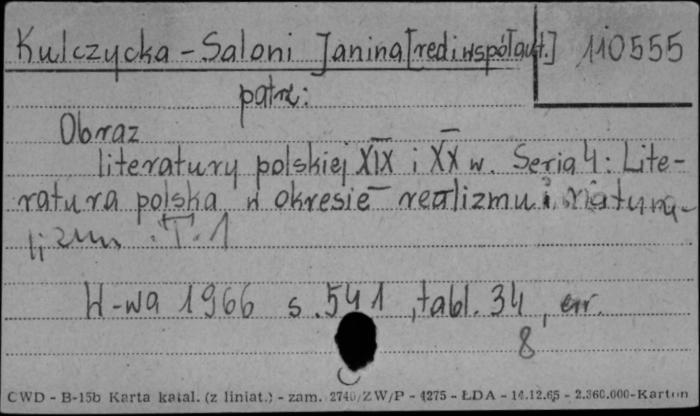 Kulczycka - Saloni Janina [red i współaut.] 110555
patrz:
Obraz
literatury polskiej XIX i XX w. Seria 4: Lite-
ratura polska w okresie realizmu i natura-
lizmu. T. 1
W-wa 1966 s. 541, tabl. 34, err.
8
CWD - B-15b Karta katal. (z liniat.) - zam. 2740/ZW/P - 4275 - ŁDA - 14.12.65 - 2.360.000-Karton